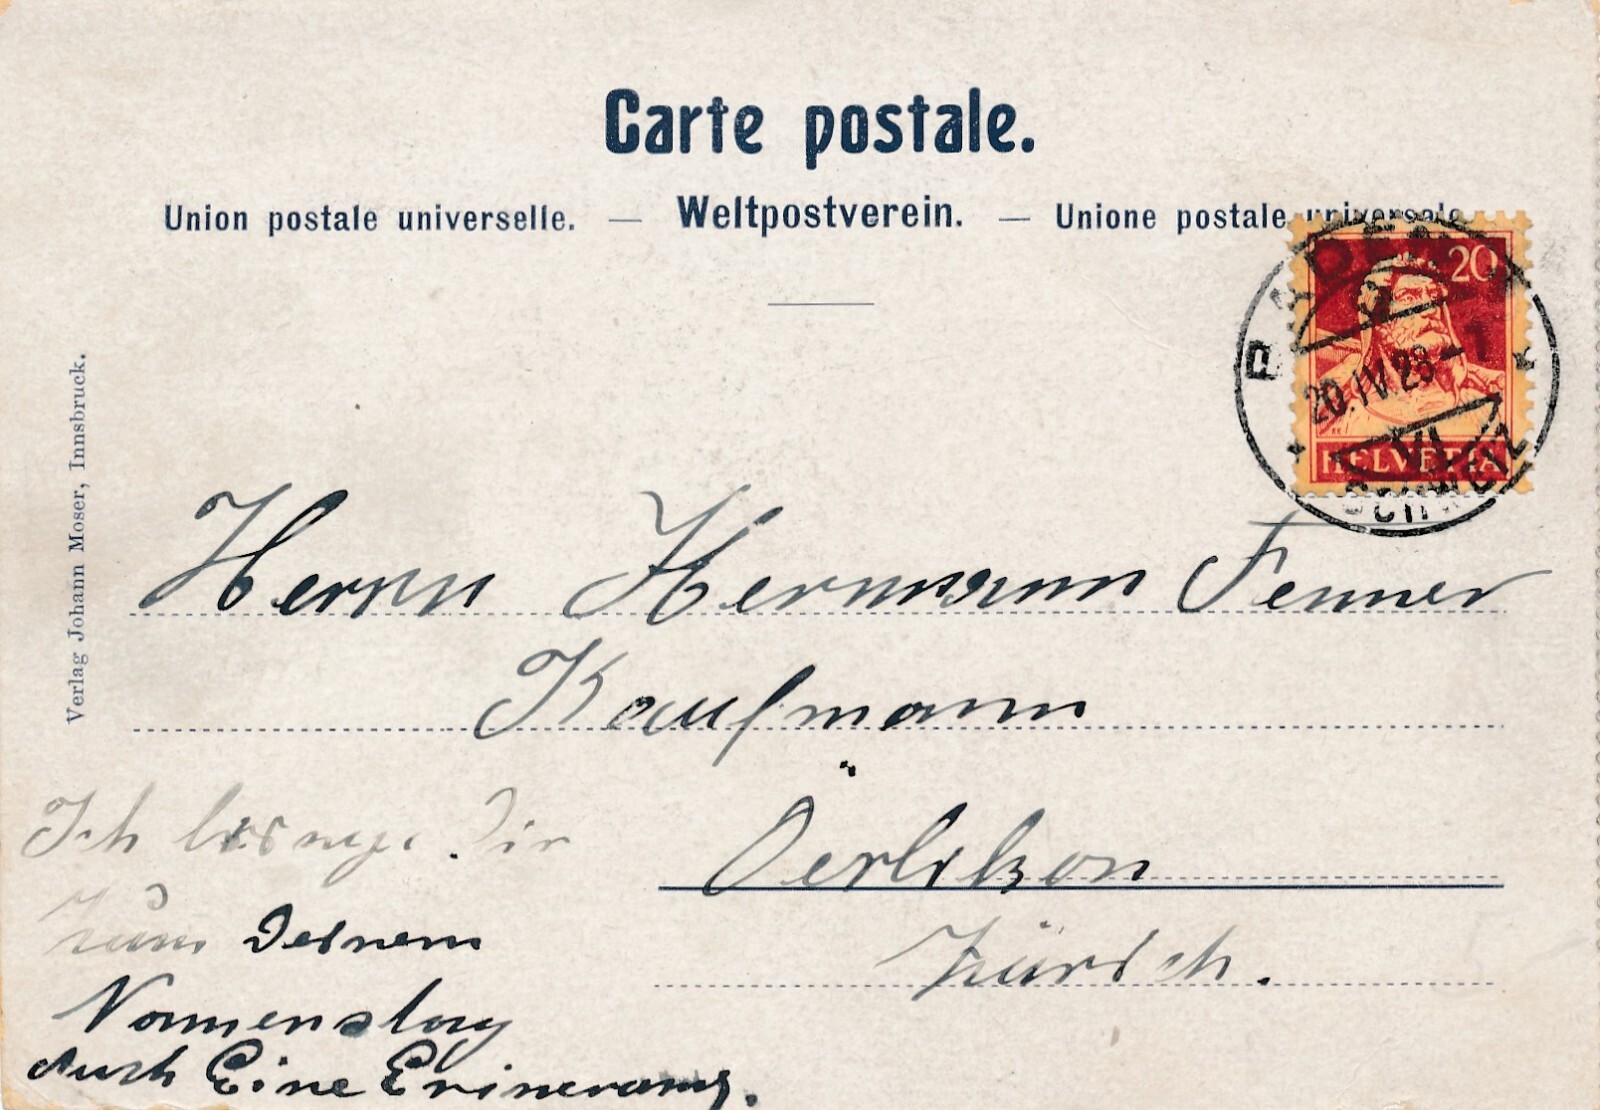 Carte postale.
Union postale universelle. — Weltpostverein. — Unione postale universale.
20
HELVETIA
BADEN
20.IV.28-7
VI
SCHWEIZ
Verlag Johann Moser, Innsbruck.
Herrn Hermann Fenner
Kaufmann
Oerlikon
Zürich.
Ich bringe Dir
zum Deinem
Nammenstag
Auch Eine Erinerung.